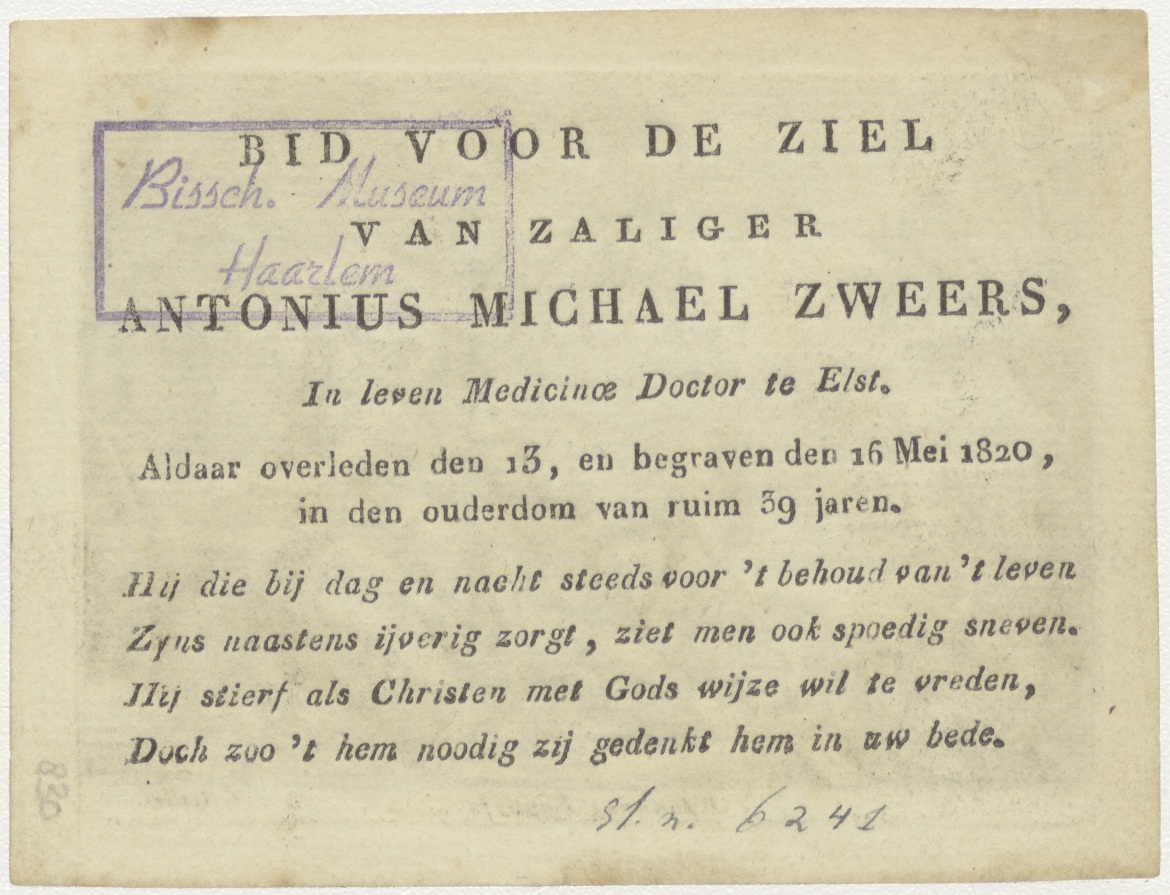 BID VOOR DE ZIEL
Bissch. Museum
VAN ZALIGER
Haarlem
ANTONIUS MICHAEL ZWEERS,
In leven Medicinœ Doctor te Elst.
Aldaar overleden den 13, en begraven den 16 Mei 1820,
in den ouderdom van ruim 39 jaren.
Hij die bij dag en nacht steeds voor 't behoud van 't leven
Zyns naastens ijverig zorgt, ziet men ook spoedig sneven.
Hij stierf als Christen met Gods wijze wil te vreden,
Doch zoo 't hem noodig zij gedenkt hem in uw bede.
6241
830